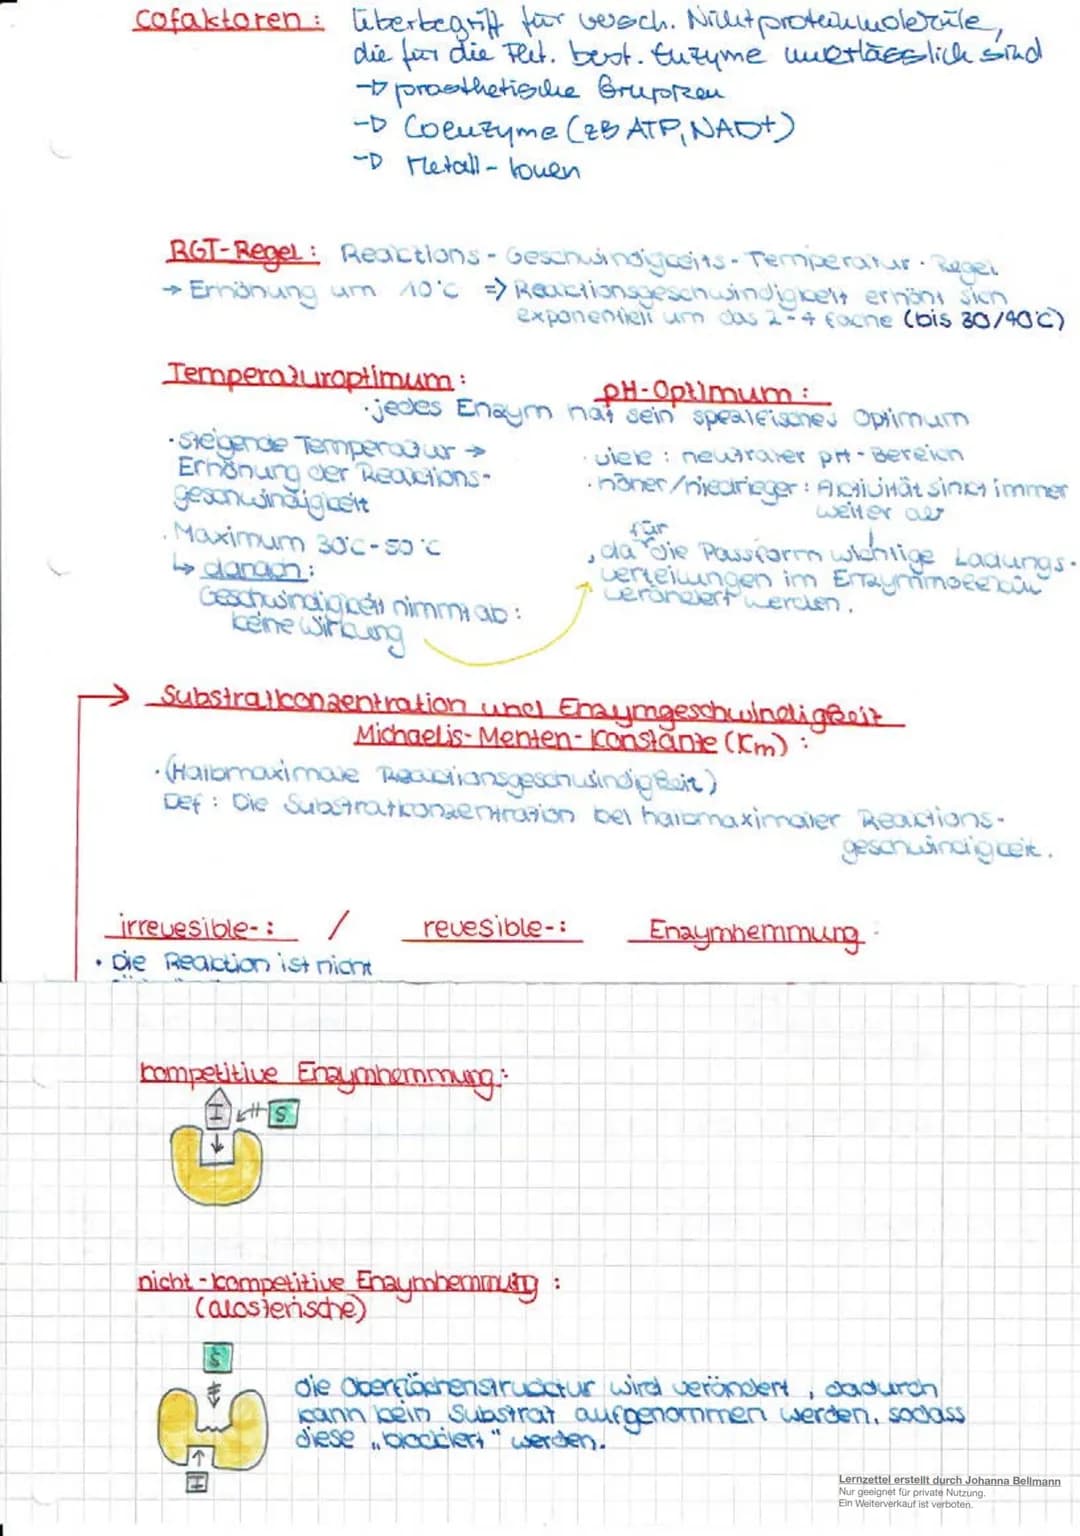 Cofaktoren : Überbegriff für versch. Nichtproteinmoleküle,
die für die Fkt. best. Enzyme unerlässlich sind
→ prosthetische Gruppen
→ Coenzyme (zB ATP, NAD+)
→ Metall-Ionen
RGT-Regel : Reaktions-Geschwindigkeits-Temperatur-Regel
→ Erhöhung um 10°C => Reaktionsgeschwindigkeit erhöht sich
exponentiell um das 2-4 fache (bis 30/40°C)
Temperaturoptimum :
pH-Optimum :
· jedes Enzym hat sein spezifisches Optimum
· steigende Temperatur →
Erhöhung der Reaktions-
geschwindigkeit
· Maximum 30°C-50°C
↳ danach :
Geschwindigkeit nimmt ab :
keine Wirkung
· viele : neutraler pH-Bereich
· höher/niedrieger : Aktivität sinkt immer
weiter ab
für
, da die Passform wichtige Ladungs-
verteilungen im Enzymmolekül
verändert werden.
→ Substratkonzentration und Enzymgeschwindigkeit
Michaelis-Menten-Konstante (Km) :
· (Halbmaximale Reaktionsgeschwindigkeit)
Def : Die Substratkonzentration bei halbmaximaler Reaktions-
geschwindigkeit.
irrevesible- : / revesible- : Enzymhemmung
· Die Reaktion ist nicht
kompetitive Enzymhemmung :
I S
nicht-kompetitive Enzymhemmung :
(alosterische)
S
die Oberflächenstruktur wird verändert, dadurch
kann kein Substrat aufgenommen werden, sodass
diese „blockiert" werden.
I
Lernzettel erstellt durch Johanna Bellmann
Nur geeignet für private Nutzung.
Ein Weiterverkauf ist verboten.